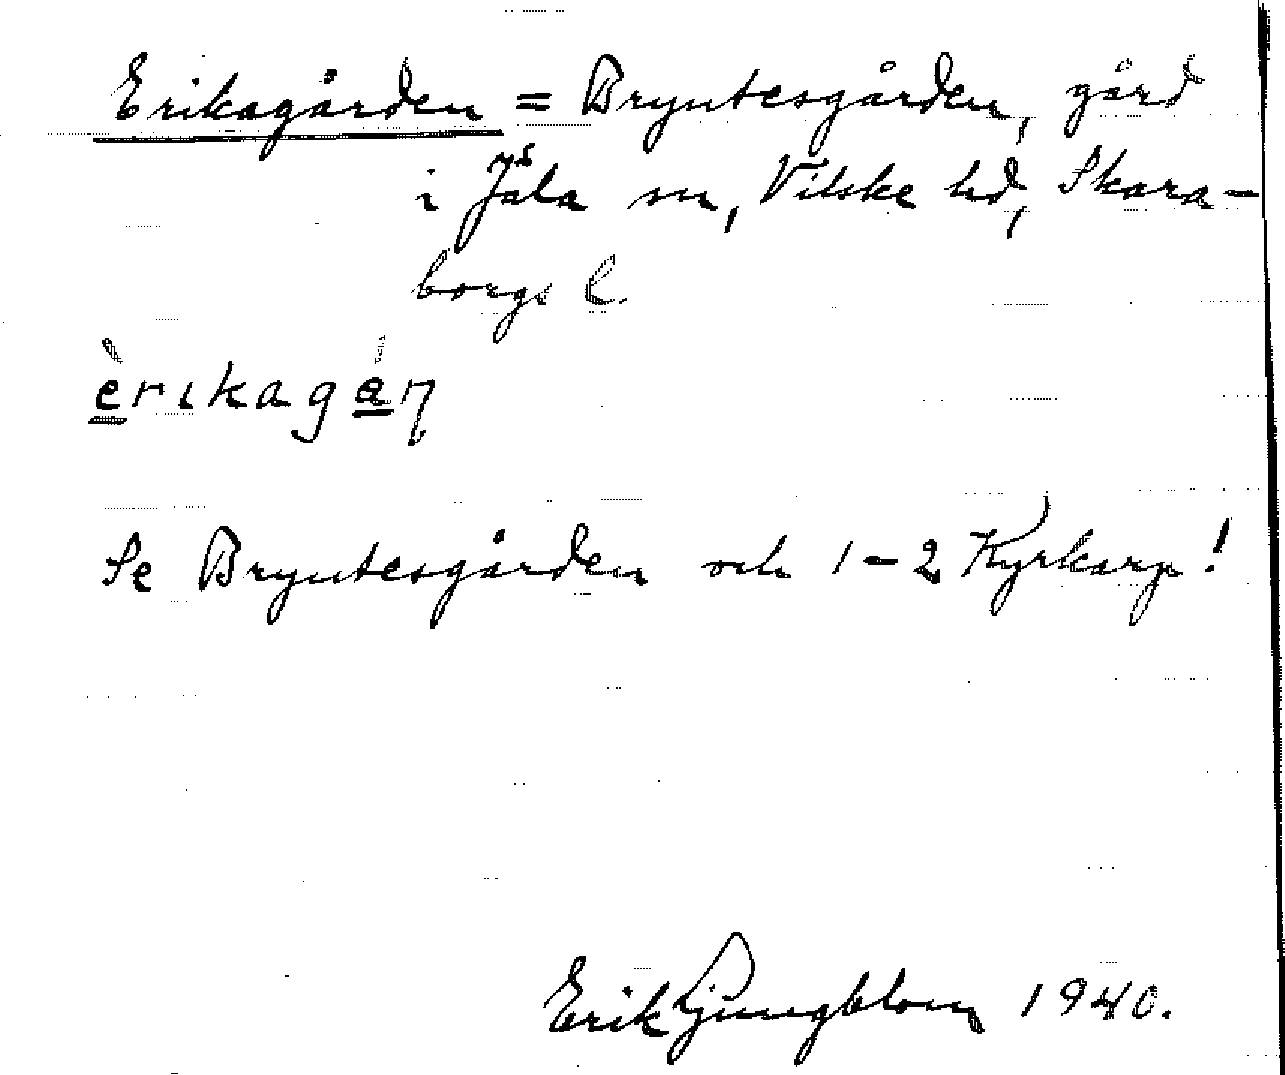 Erikagården = Bryntesgården, gård
i Jäla sn, Vilske hd, Skara-
borgs l.
èrikagá̱ɳ
Se Bryntesgården och 1-2 Kyrkarp!
Erik Ljungblom 1940.